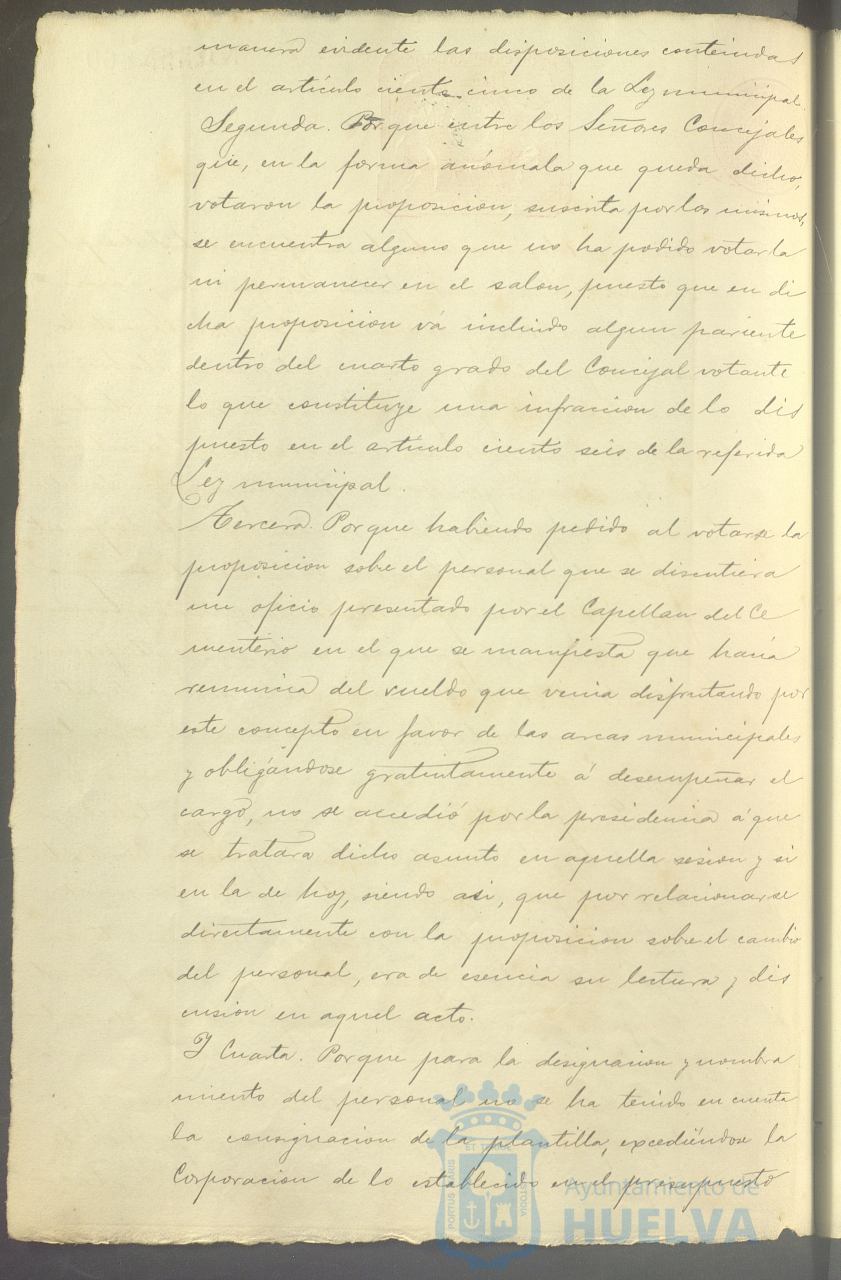 manera evidente las disposiciones contenidas
en el artículo ciento cinco de la Ley municipal.
Segunda. Porque entre los Señores Concejales
que, en la forma anómala que queda dicho,
votaron la proposicion, suscrita por los mismos,
se encuentra alguno que no ha podido votarla
ni permanecer en el salon, puesto que en di
cha proposicion vá incluido algun pariente
dentro del cuarto grado del Concejal votante
lo que constituye una infraccion de lo dis
puesto en el artículo ciento seis de la referida
Ley municipal.
Tercera. Porque habiendo pedido al votarse la
proposicion sobre el personal que se discutiera
un oficio presentado por el Capellan del Ce
menterio en el que se manifiesta que hacía
renuncia del sueldo que venia disfrutando por
este concepto en favor de las arcas municipales
y obligándose gratuitamente á desempeñar el
cargo, no se accedió por la presidencia á que
se tratara dicho asunto en aquella sesion y si
en la de hoy, siendo asi, que por relacionarse
directamente con la proposicion sobre el cambio
del personal, era de esencia su lectura y dis
cusion en aquel acto.
Y Cuarta. Porque para la designacion y nombra
miento del personal no se ha tenido en cuenta
la consignacion de la plantilla, excediéndose la
Corporacion de lo establecido en el presupuesto
PORTUS MARIS ET TERRAE CUSTODIA
Ayuntamiento de
HUELVA